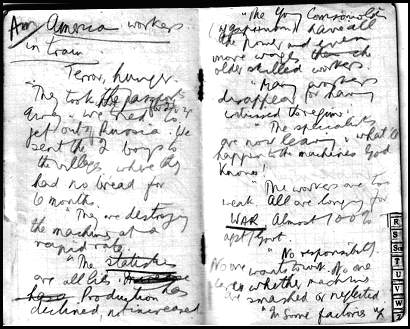 Am America workers
in train.
Terror, hunger.
"They took the passports
away" we tried to
get out of Russia. He
sent the 2 boys to
the villages where they
had no bread for
6 months.
"They are destroying
the machines at a
rapid rate.
"The statistics
are all lies.
Production has
declined, not increased
"The Young Comsomolets
have all
the power and even
more wages than
older skilled workers.
"Many workers
disappear for having
criticised the regime.
"The specialists
are now leaving & what'll
happen to the machines God
knows!
"The workers are too
weak. All are longing for
WAR. Almost 100%
agst Govt.
"No responsibility.
No one wants to work. No one
cares whether machines
are smashed or neglected
"In Some factories
R
S
T
U
V
W